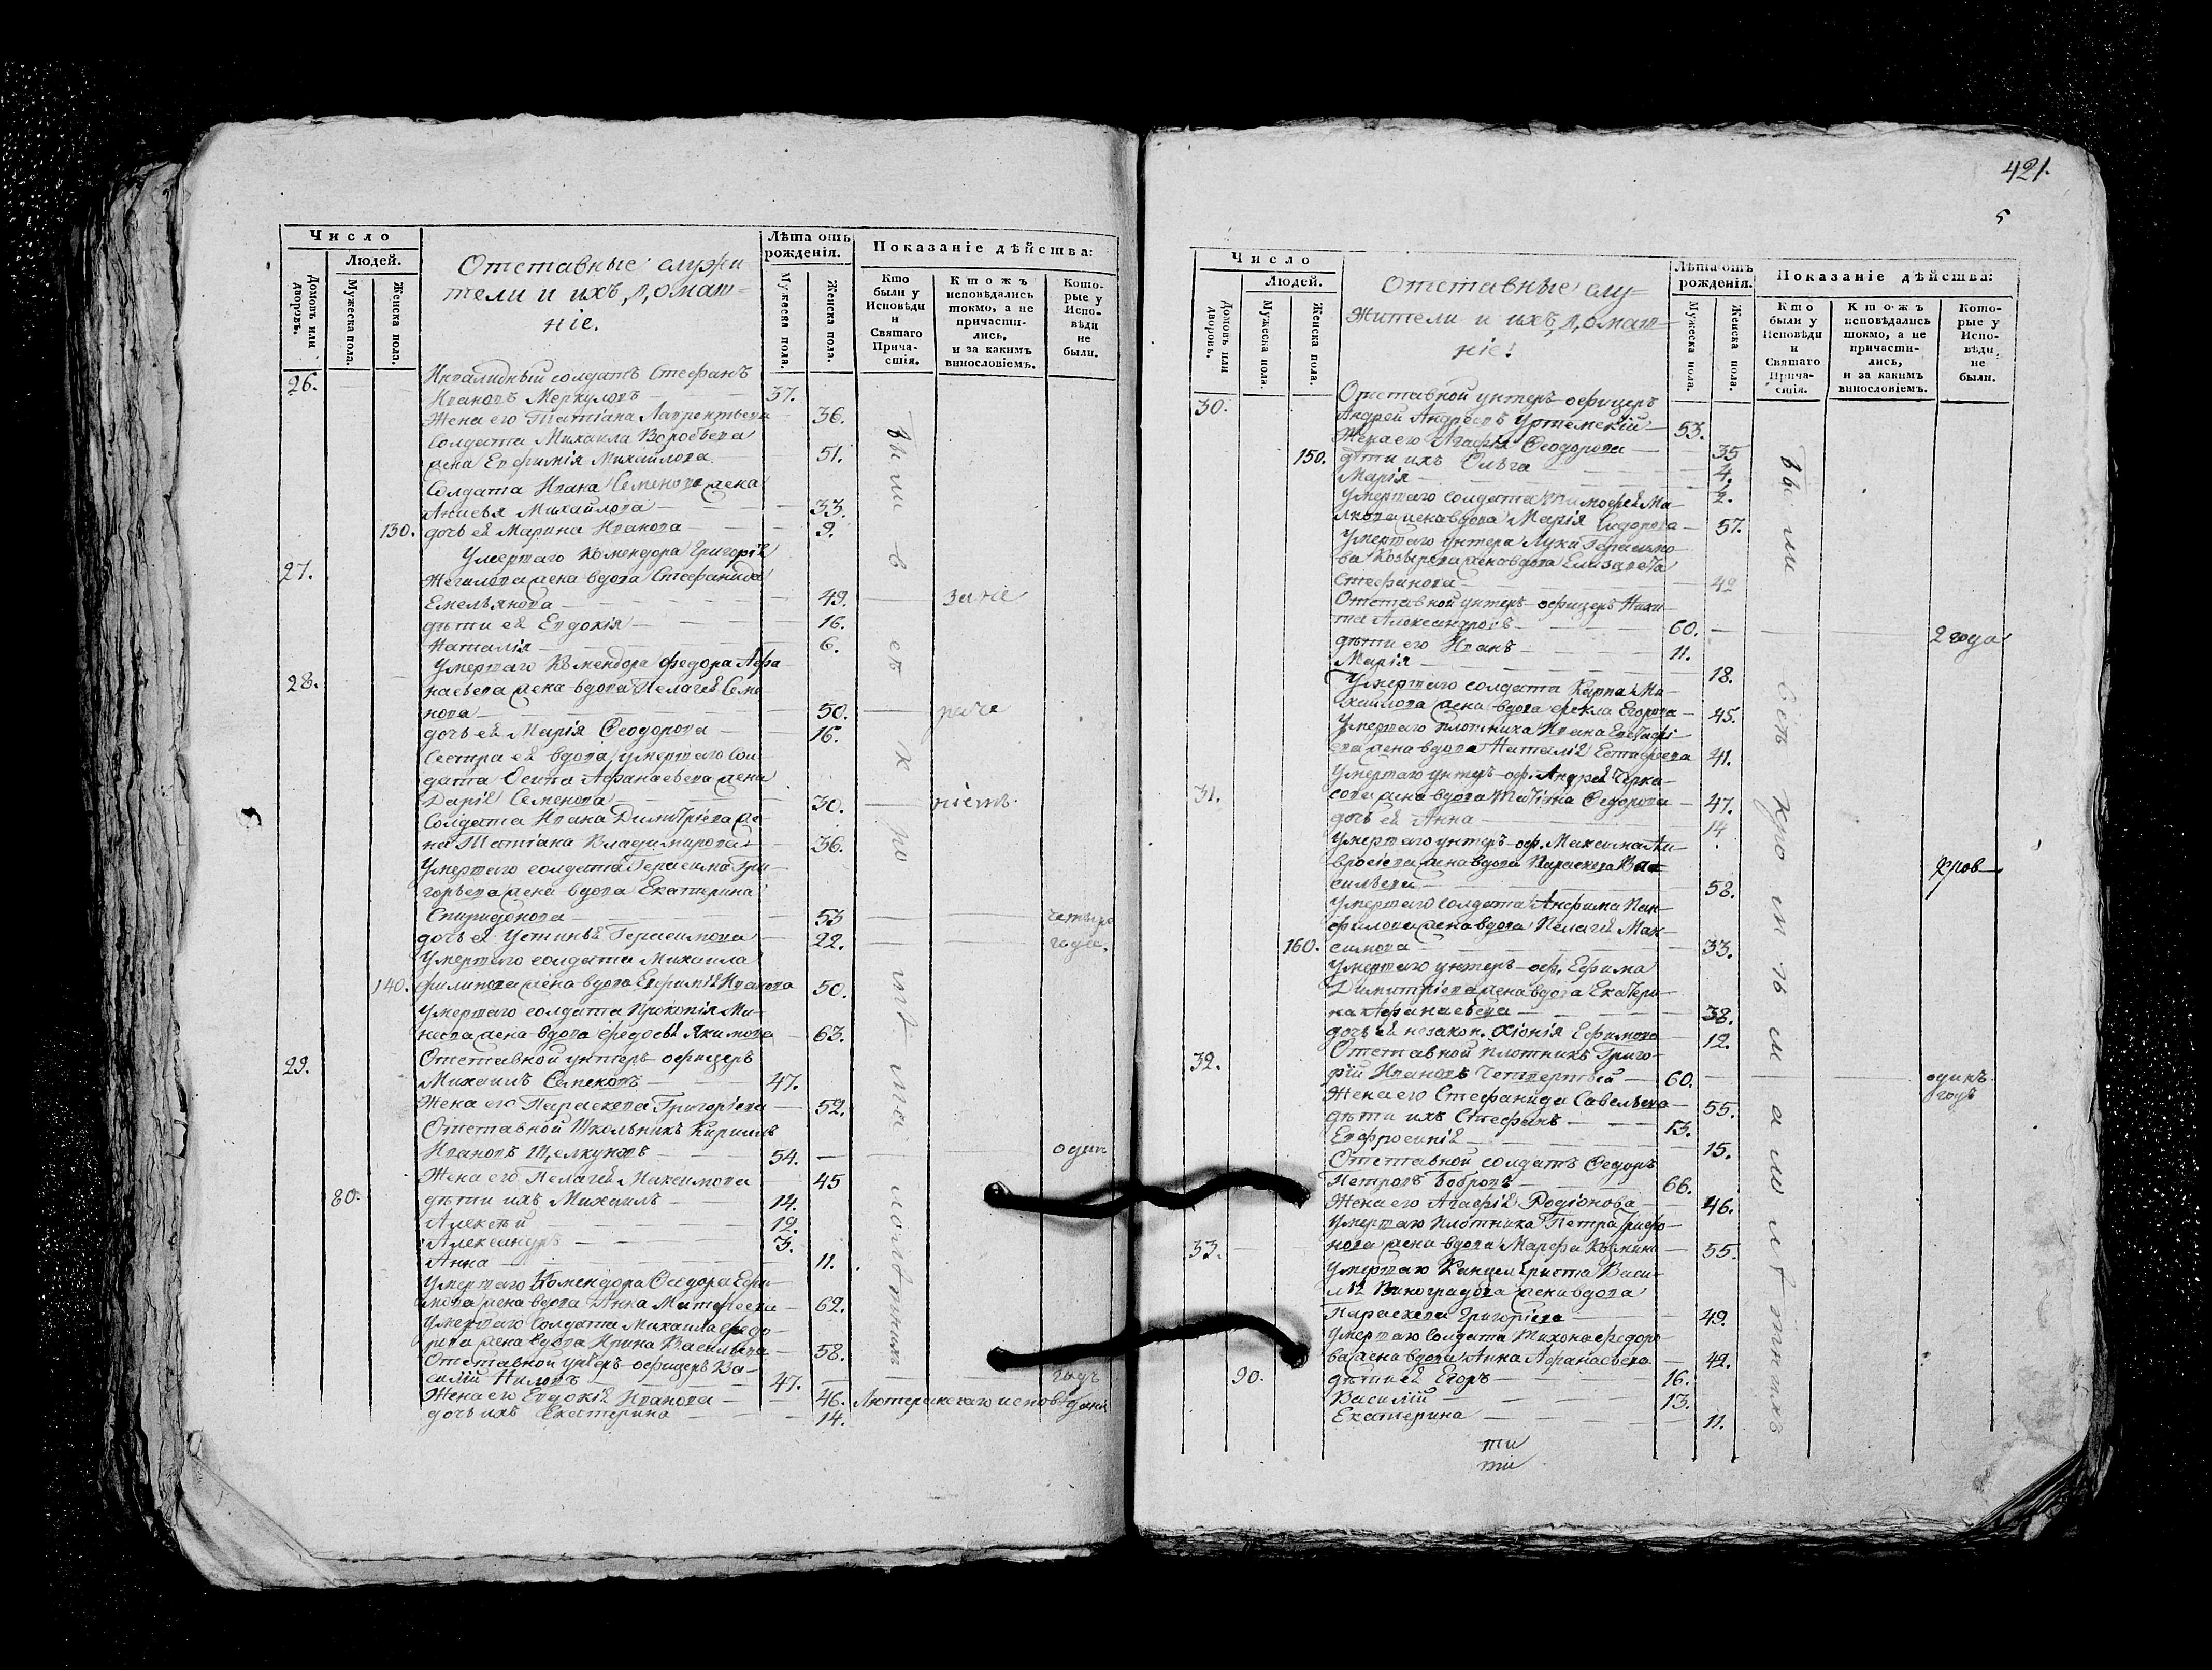 Число
Людей.
Домовъ или дворовъ.
Мужеска пола.
Женска пола.
Отставные служи
тели и ихъ домаш-
ніе.
Лѣта отъ
рожденія.
Мужеска пола.
Женска пола.
Показаніе дѣйства:
Кто
были у
Исповѣди
и
Святаго
Прича-
стія.
Ктожъ
исповѣдались
токмо, а не
причасти-
лись,
и за какимъ
винословіемъ.
Кото-
рые у
Испо-
вѣди
не
были.
26. Инвалидный солдатъ Стефанъ
Ивановъ Меркуловъ 37.
Жена его Татіана Лаврентьева 36.
Солдата Михаила Воробьева
жена Евфимія Михайлова 51.
Солдата Ивана Семенова жена
Анисья Михайлова 33.
130. дочь ей Марина Иванова 9.
Умершаго Комендора Григорій
27. жена вдова Стефанида
Емельянова 49.
дѣти ей Евдокія 16.
Наталія 6.
Умершаго Комендора Федора Афа
28. насьева жена вдова Пелагея Семе
нова 50.
дочь ей Марія Ѳеодорова 16.
Сестра ей вдова умершаго Сол-
дата Осипа Афанасьева жена
Дарія Семенова 30.
Солдата Ивана Димитріева же
на Татіана Владимирова 36.
Умершаго солдата Герасима Гри-
горьева жена вдова Екатерина
Спиридонова 53 четыре
дочь ей Устинья Герасимова 22. года.
Умершаго солдата Михаила
140. Филипова жена вдова Евфимія Иванова 50.
Умершаго солдата Прокопія Ми-
жена вдова Федосья Якимова 63.
29. Отставной унтеръ-офицеръ
Михаилъ Семеновъ 47.
Жена его Параскева Григоріева 52.
Отставной Школьникъ Кириллъ
Ивановъ Щелкуновъ 54. один
Жена его Пелагея Максимова 45
80. дѣти ихъ Михаилъ 14.
Алексѣй 12.
Александръ 3.
Анна 11.
Умершаго Комендора Ѳеодора Ефи-
мова жена вдова Анна Матфеева 62.
Умершаго Солдата Михаила Федо-
рова жена вдова Ирина Васильева 58.
Отставной унтеръ-офицеръ Ва-
силій Ниловъ 47. годъ
Жена его Евдокія Иванова 46. Лютеранскаго исповѣданія
дочь ихъ Екатерина 14.
были в сѣ кромѣ малолѣтнихъ
421.
5
Число
Людей.
Домовъ или дворовъ.
Мужеска пола.
Женска пола.
Отставные слу-
жители и ихъ домаш-
ніе.
Лѣта отъ
рожденія.
Мужеска пола.
Женска пола.
Показаніе дѣйства:
Кто
были у
Исповѣди
и
Святаго
Прича-
стія.
Ктожъ
исповѣдались
токмо, а не
причасти-
лись,
и за какимъ
винословіемъ.
Кото-
рые у
Испо-
вѣди
не
были.
30. Отставной унтеръ-офицеръ
Андрей Андреевъ 53.
Жена его Агафья Ѳеодорова 35
150. дѣти ихъ Ольга 4.
Марія 2.
Умершаго солдата Тимофея Ма-
жена вдова Марія Сидорова 57.
Умершаго унтера Луки Герасимо
ва Козырева жена вдова Елизавета
Стефанова 42
Отставной унтеръ-офицеръ Ники
та Александровъ 60. 2 года
дѣти его Иванъ 11.
Марія 18.
Умершаго солдата Карпа Ми-
хайлова жена вдова Фекла Егорова 45.
Умершаго плотника Ивана Евстафі
ева жена вдова Наталія Естафева 41.
Умершаго унтеръ-оф. Андрея Черка-
31. сова жена вдова Татіана Федорова 47.
дочь ей Анна 14.
Умершаго унтеръ-оф. Максима Ам-
вросіева жена вдова Параскева Ва
сильева 58.
Умершаго солдата Анфима Пан-
филова жена вдова Пелагея Мак-
160. симова 33.
Умершаго унтеръ-оф. Ефима
Димитріева жена вдова Екатери-
на Афанасьева 38.
дочь ей незакон. Хіонія Ефимова 12.
32. Отставной плотникъ Григо-
рій Ивановъ Четвертый 60. одинъ
Жена его Стефанида Савельева 55. годъ
дѣти ихъ Стефанъ 13.
Евфросинія 15.
Отставной солдатъ Федоръ
Петровъ Бобровъ 66.
Жена его Агафія Родіонова 46.
Умершаго плотника Петра Трифо-
33. нова жена вдова Марфа Кузмина 55.
Умершаго Канцеляриста Васи-
лія Виноградова жена вдова
Параскева Григоріева 49.
Умершаго Солдата Тихона Федоро
ва жена вдова Анна Афанасьева 42.
90. дѣти ей Егоръ 16.
Василій 13.
Екатерина 11.
были всѣ кромѣ малолѣтнихъ